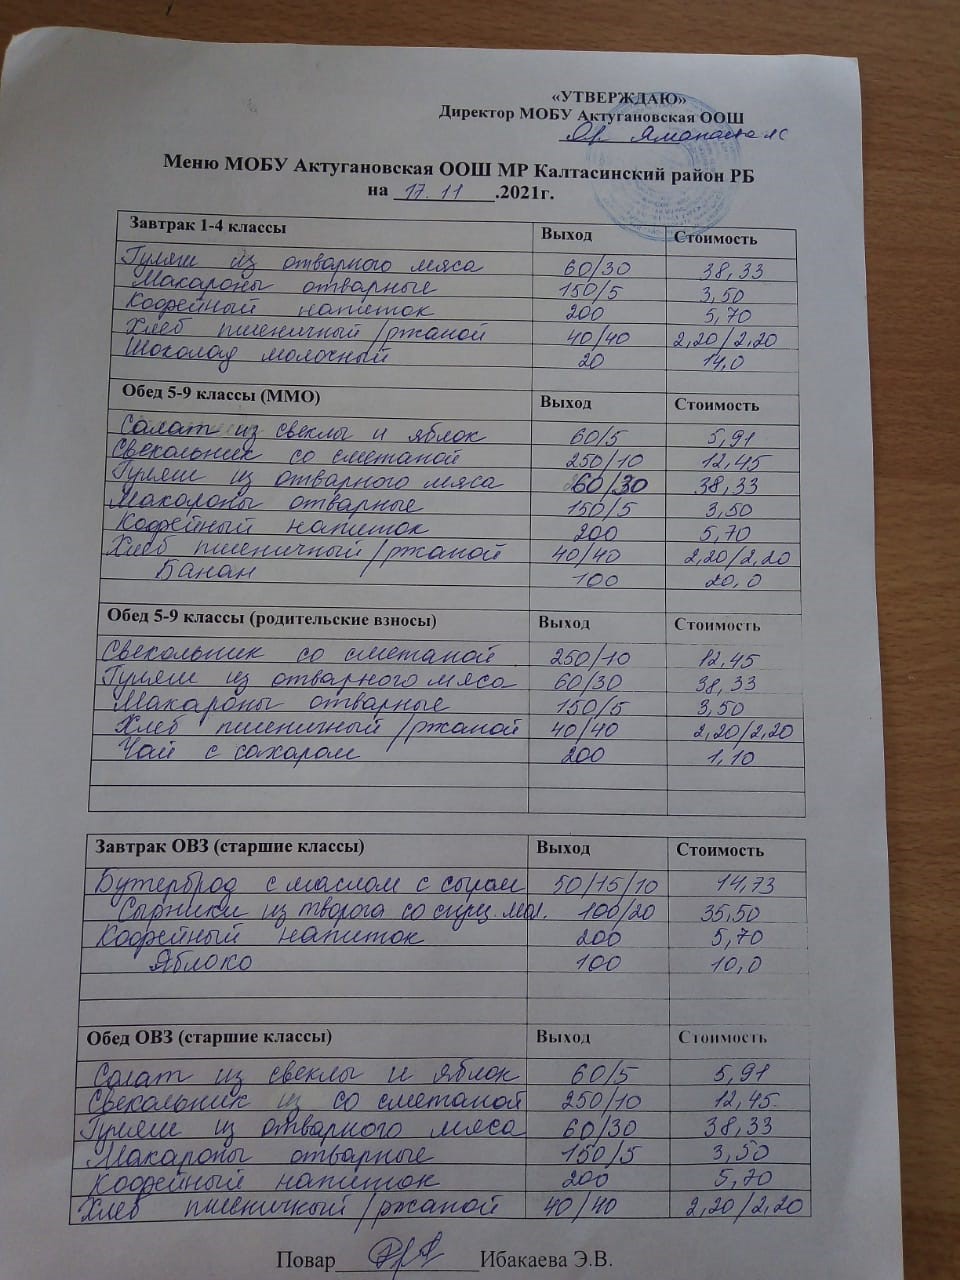 «УТВЕРЖДАЮ»
Директор МОБУ Актугановская ООШ
Меню МОБУ Актугановская ООШ МР Калтасинский район РБ
на 17.11.2021г.
Завтрак 1-4 классы Выход Стоимость
Гуляш из отварного мяса 60/30 38,33
Макароны отварные 150/5 3,50
Кофейный напиток 200 5,70
Хлеб пшеничный/ржаной 40/40 2,20/2,20
Шоколад молочный 20 14,0
Обед 5-9 классы (ММО) Выход Стоимость
Салат из свеклы и яблок 60/5 5,91
Свекольник со сметаной 250/10 12,45
Гуляш из отварного мяса 60/30 38,33
Макароны отварные 150/5 3,50
Кофейный напиток 200 5,70
Хлеб пшеничный/ржаной 40/40 2,20/2,20
Банан 100 20,0
Обед 5-9 классы (родительские взносы) Выход Стоимость
Свекольник со сметаной 250/10 12,45
Гуляш из отварного мяса 60/30 38,33
Макароны отварные 150/5 3,50
Хлеб пшеничный/ржаной 40/40 2,20/2,20
Чай с сахаром 200 1,10
Завтрак ОВЗ (старшие классы) Выход Стоимость
Бутерброд с маслом с сыром 50/15/10 14,73
Сырники из творога со сгущ. мол. 100/20 35,50
Кофейный напиток 200 5,70
Яблоко 100 10,0
Обед ОВЗ (старшие классы) Выход Стоимость
Салат из свеклы и яблок 60/5 5,91
Свекольник из со сметаной 250/10 12,45
Гуляш из отварного мяса 60/30 38,33
Макароны отварные 150/5 3,50
Кофейный напиток 200 5,70
Хлеб пшеничный/ржаной 40/40 2,20/2,20
Повар Ибакаева Э.В.